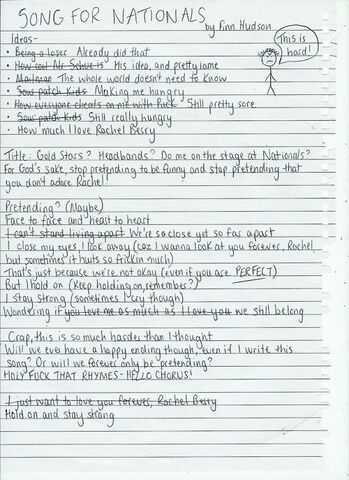 SONG FOR NATIONALS
by Finn Hudson
This is hard!
Ideas-
• Being a loser Already did that
• How cool Mr Schue is His idea, and pretty lame
• Mailman The whole world doesn't need to know
• Sour patch Kids Making me hungry
• How everyone cheats on me with Puck Still pretty sore
• Sour patch Kids Still really hungry
• How much I love Rachel Berry
Title: Gold Stars? Headbands? Do me on the stage at Nationals?
For God's sake, stop pretending to be funny and stop pretending that
you don't adore Rachel!
Pretending? (Maybe)
Face to face and heart to heart
I can't stand living apart We're so close yet so far apart
I close my eyes, I look away (coz I wanna look at you forever, Rachel,
but sometimes it hurts so frickin much)
That's just because we're not okay (even if you are PERFECT)
But I hold on (Keep holding on, remember?)
I stay strong (sometimes I cry though)
Wondering if you love me as much as I love you we still belong
Crap, this is so much harder than I thought
Will we ever have a happy ending though, even if I write this
song? Or will we forever only be pretending?
HOLY FUCK THAT RHYMES - HELLO CHORUS!
I just want to love you forever, Rachel Berry
Hold on and stay strong